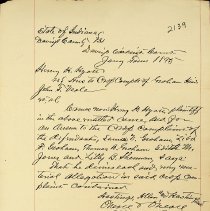 State of Indiana
Daviess County SS
2139
Daviess Circuit Court
Term 1895
Henry H. Hyatt
vs Ans to Cross Complt of Graham heirs
John F. Neale
et al
Comes now Henry H. Hyatt plaintiff
in the above entitled cause, and for
an answer to the Cross Complaint of
the defendants, James N. Graham, Robt
P. Graham, Thomas N. Graham Edith M.
Jones and Lilly O. Thomas, says
that he denies each and every ma-
terial allegation in said cross com-
plaint contained